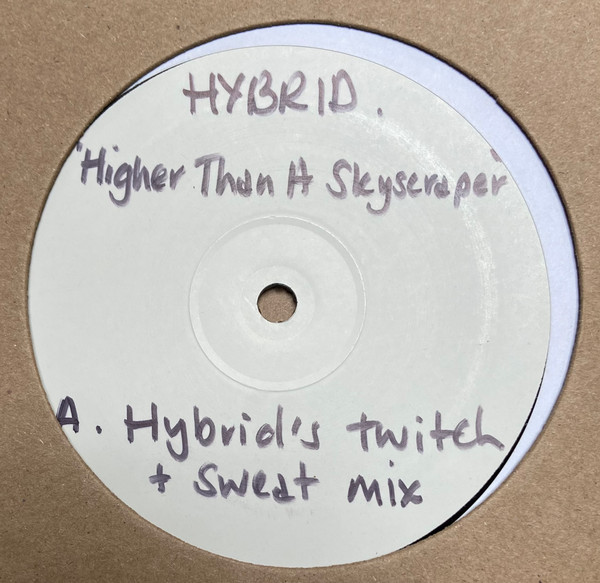 HYBRID.
"Higher Than A Skyscraper"
A. Hybrid's twitch
+ Sweat mix